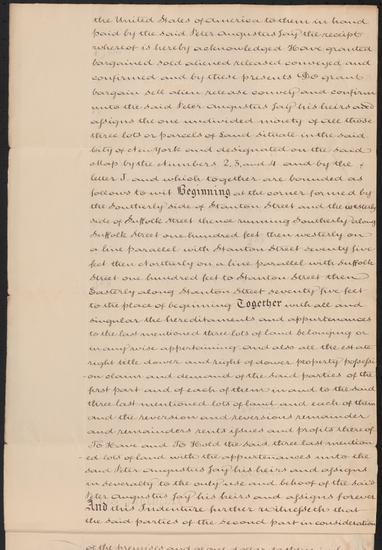 the United States of America to them in hand
paid by the said Peter Augustus Jay the receipt
whereof is hereby acknowledged Have granted
bargained sold aliened released conveyed and
confirmed and by these presents Do grant
bargain sell alien release convey and confirm
unto the said Peter Augustus Jay his heirs and
assigns the one undivided moiety of all those
three lots or parcels of Land situate in the said
City of New York and designated on the said
Map by the Numbers 2, 3, and 4 and by the
letter J. and which together are bounded as
follows to wit Beginning at the corner formed by
the Southerly side of Stanton Street and the westerly
side of Suffolk Street thence running Southerly along
Suffolk Street one hundred feet then westerly on
a line parallel with Stanton Street seventy five
feet then Northerly on a line parallel with Suffolk
Street one hundred feet to Stanton Street then
Easterly along Stanton Street seventy five feet
to the place of beginning Together with all and
singular the hereditaments and appurtenances
to the last mentioned three lots of land belonging or
in any wise appertaining and also all the estate
right title dower and right of dower property possessi
on claim and demand of the said parties of the
first part and of each of them in and to the said
three last mentioned lots of land and each of them
and the reversion and reversions remainder
and remainders rents issues and profits thereof
To Have and To Hold the said three last mention
ed lots of land with the appurtenances unto the
said Peter Augustus Jay his heirs and assigns
in severalty to the only use and behoof of the said
Peter Augustus Jay his heirs and assigns forever
And this Indenture further witnesseth that
the said parties of the second part in consideration
of the premises and of one dollar